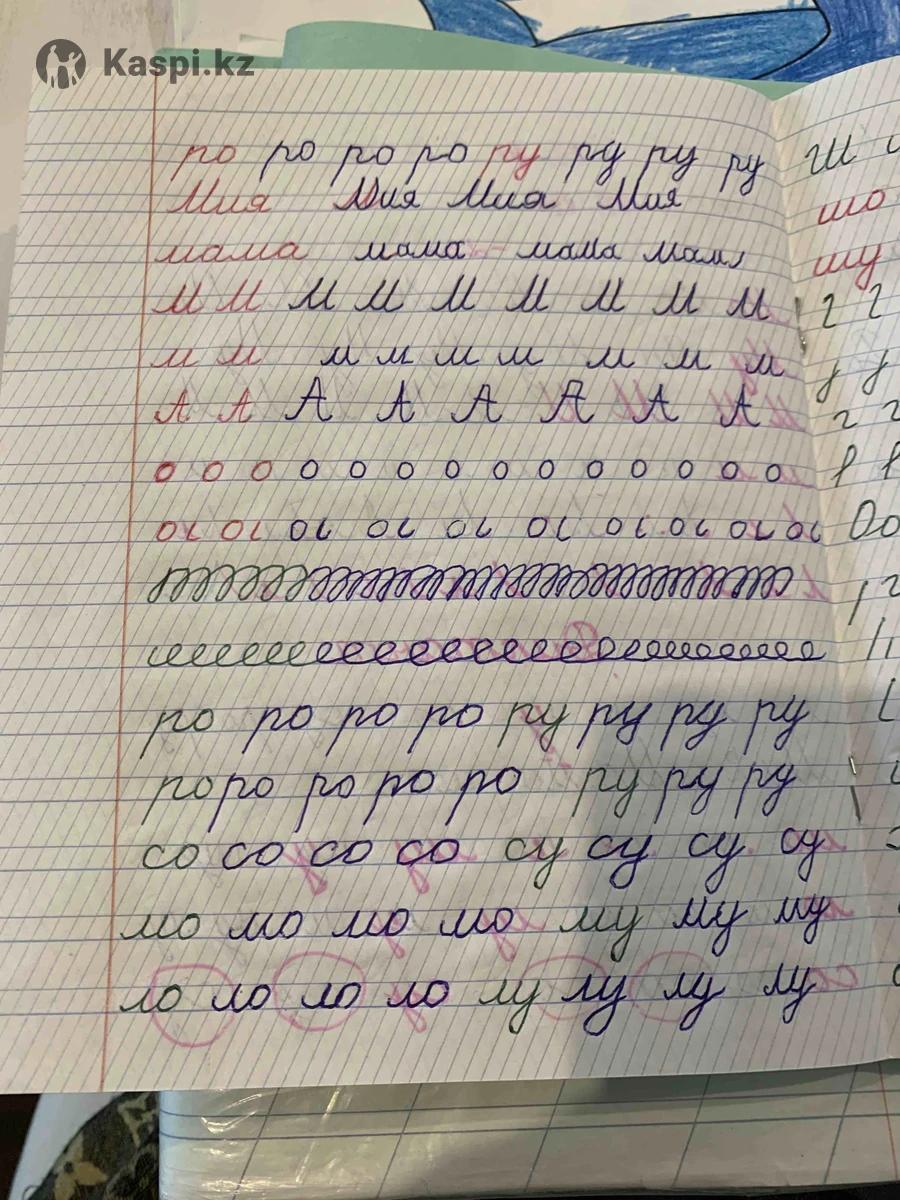 Kaspi.kz
ро ро ро ро ру ру ру ру
Мия Мия Мия Мия
мама мама мама мама
М М М М М М М М М
м м м м м м м м м
А А А А А А А А
о о о о о о о о о о о о о о
ос ос ос ос ос ос ос ос ос
ро ро ро ро ру ру ру ру
ро ро ро ро ро ру ру ру
со со со со су су су су
мо мо мо мо му му му
ло ло ло ло лу лу лу лу
ш
шо
шу
г г
г г
Оо